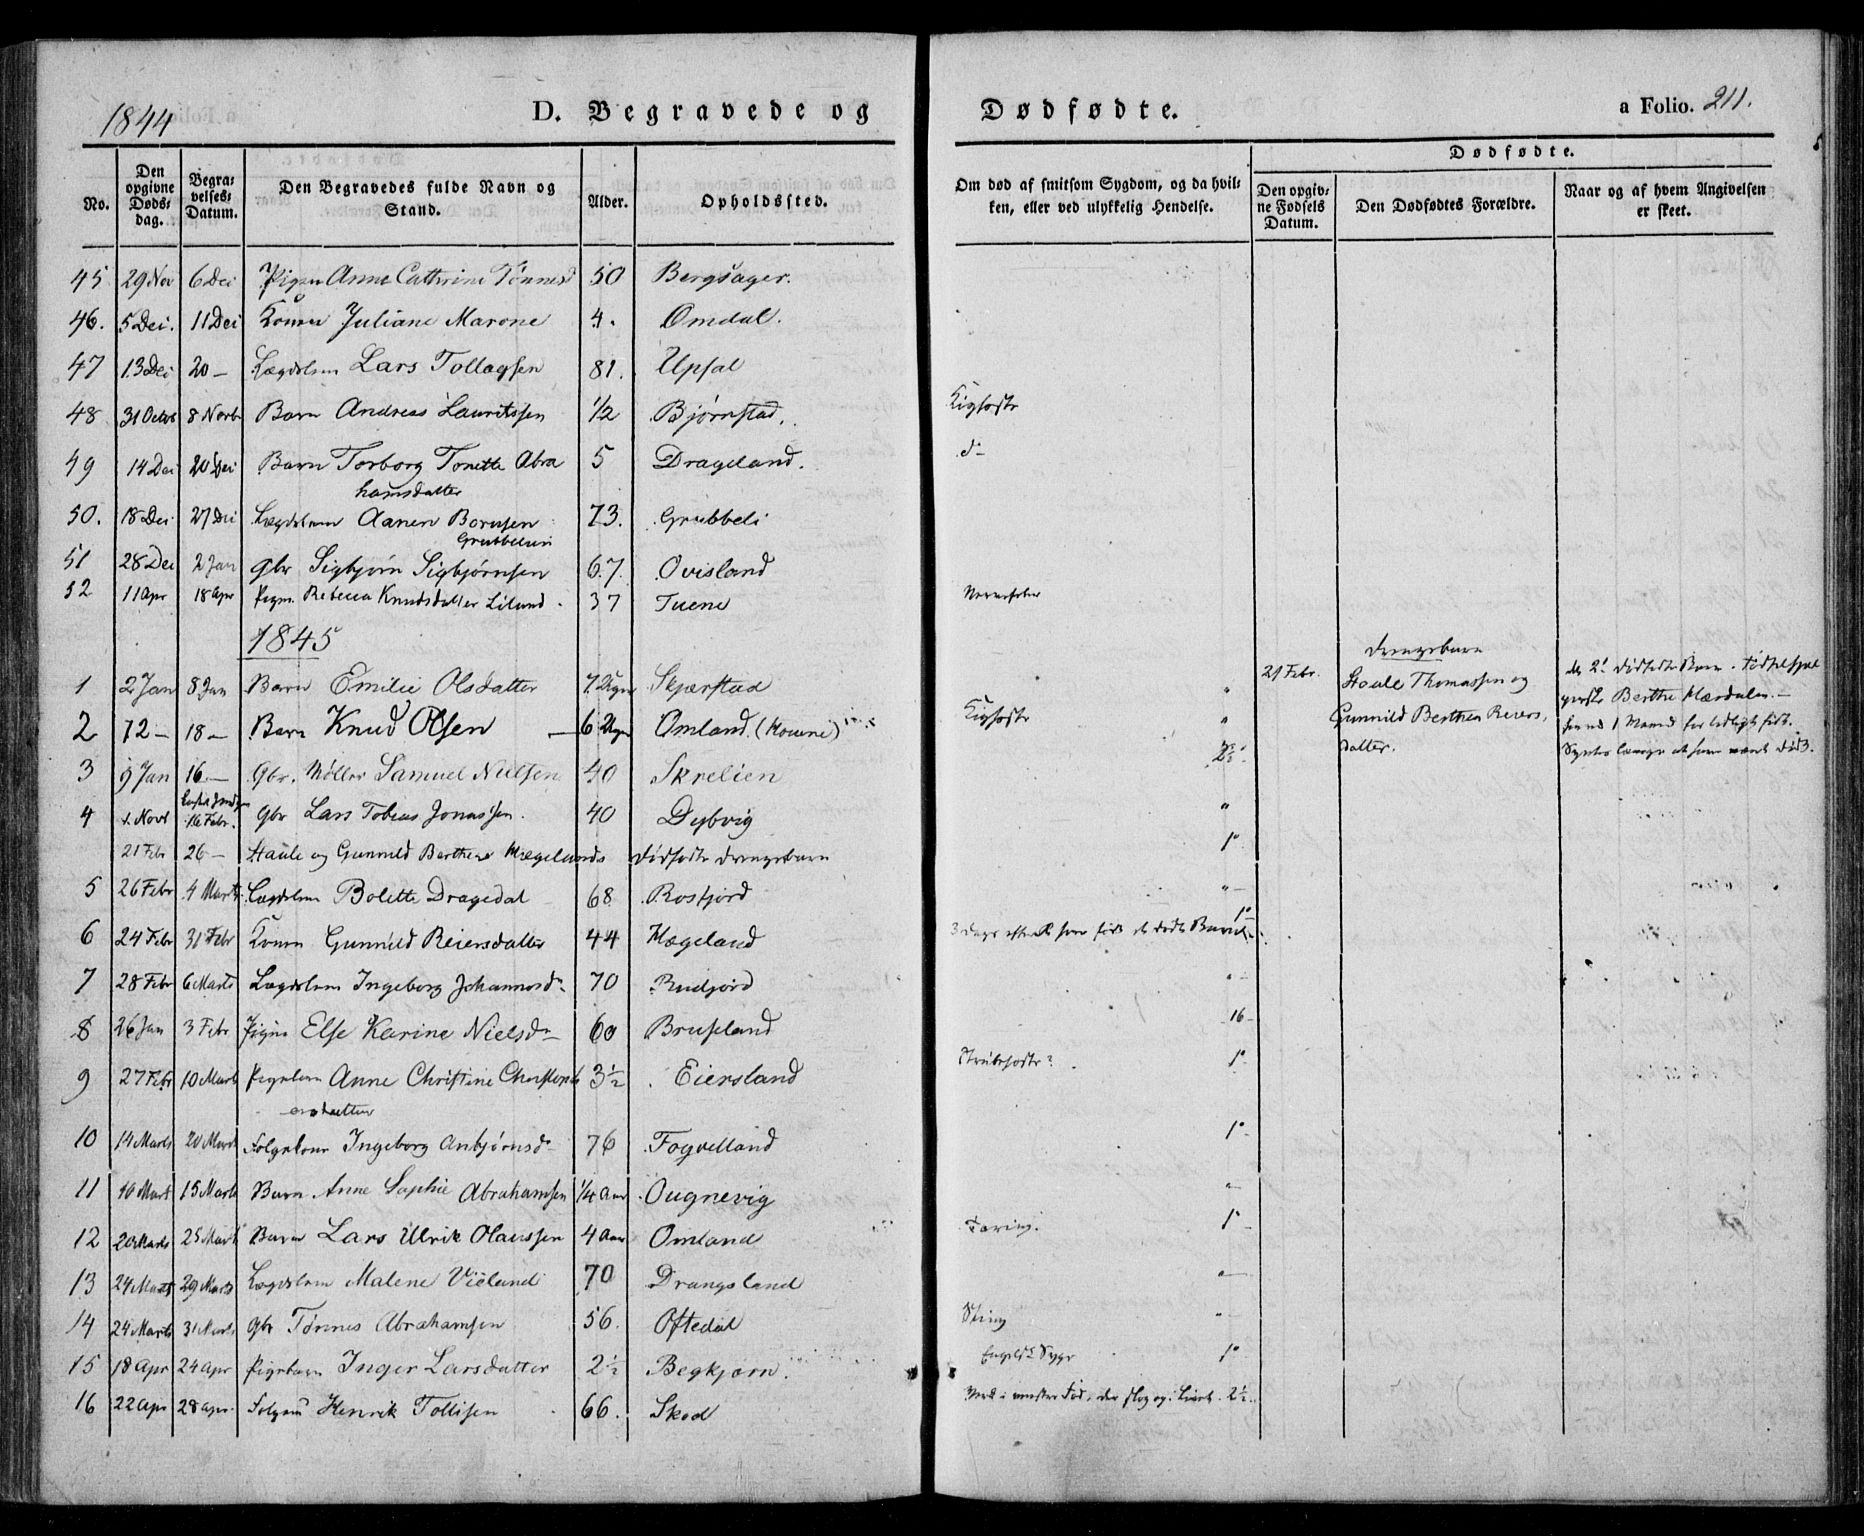 1844 D. Begravede og Dødfødte. a Folio. 211.
No. Den opgivne Døds-dag. Begra-velses-Datum. Den Begravedes fulde Navn og Stand. Alder. Opholdssted. Om død af smitsom Sygdom, og da hvil-ken, eller ved ulykkelig Hendelse. Dødfødte. Den opgiv-ne Fødsels Datum. Den Dødfødtes Forældre. Naar og af hvem Angivelsen er skeet.
45 29 Nov 6 Dec Pigen Anne Cathrine Tønnesd 50 Bergsager.
46. 5 Dec. 11 Dec Konen Juliane Marone 4. Omdal.
47 13 Dec 20 - Lægdslem Lars Tollagsen 81. Upsal
48 31 Octob 8 Novb Barn Andreas Lauritssen 1/2 Bjørnstad. Kighoste
49 14 Dec 20 Dec Barn Torborg Tonette Abra 5 Drageland. d-
hamsdatter
50. 18 Dec 27 Dec Lægdslem Aanen Bornsen 73. Grubbeli
51 28 Dec 2 Jan gbr Sigbjørn Sigbjørnsen 67. Ovisland
52 11 Apr 18 Apr Pigen Rebecca Knudsdatter Lilund 37 Tuene Nervefeber
1845
1 2 Jan 8 Jan Barn Emilie Olsdatter Skjærstad "
21 Febr. Drengebarn Staale Thomassen og Gunnild Berthea Reiers, datter.
2 12 - 18 - Barn Knud Olsen - 6 Uger Omland (Houene) Kighoste "
3 9 Jan 16 - Gbr. Møller Samuel Nielsen 40 Skrelien 2 1/2
4 1. Novb 16 Febr. gbr Lars Tobias Jonassen. 40 Dybvig "
21 Febr 26 - Staale og Gunnild Berthea Hægelands dødfødte Drengebarn 1°
5 26 Febr 4 Marts Lægdslem Bolette Dragedal 68 Rosfjord "-
6 24 Febr 31 Febr Konen Gunnild Reiersdatter 44 Hægeland 3 dage efterat have født et dødt Barn 1°
7 28 Febr 6 Marts Lægdslem Ingeborg Johannesd- 70 Rudjord "-
8 26 Jan 3 Febr Pigen Else Karine Nielsd- 60 Bruseland 16-
9 27 Febr 10 Marts Pigebarn Anne Christine Christoph 3 1/2 Eiersland Strubehoste? 1°
ersdatter
10 14 Marts 20 Marts Folgekone Ingeborg Anbjørnsd- 76 Fogvelland 1°-
11 10 Mart 15 Marts Barn Anne Sophie Abrahamsen 1/4 Aar Ougnevig "-
12 20 Marts 25 Marts Barn Lars Ulrik Olaussen 4 Aar Omland Tæring. 1°-
13 24 Marts 29 Marts Lægdslem Malene Vieland 70 Drangsland "-
14 24 Marts 31 Marts gbr Tønnes Abrahamsen 56. Oftedal Sting "-
15 18 Apr 24 Apr Pigebarn Inger Larsdatter 2 1/2 Begkjørn. Engelsk Syge 1°
16 22 Apr 28 Apr. Folgem Henrik Tollisen 66. Skod Værk i venstre Fod, der slog op i Livet. 2 1/2